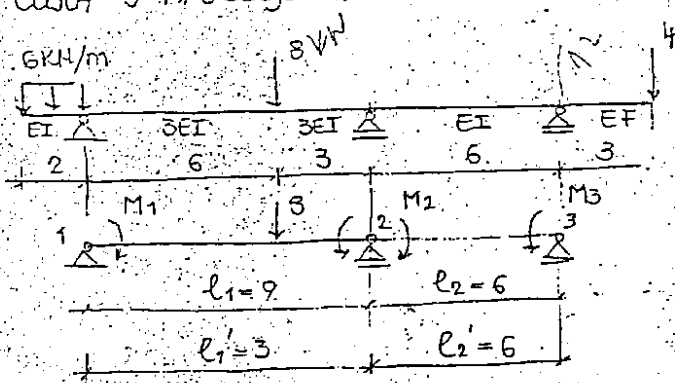 6KH/m 8 KN 4
EI 3EI 3EI EI EF
2 6 3 6 3
M1 8 M2 M3
1 2 3
l1=9 l2=6
l1'=3 l2'=6